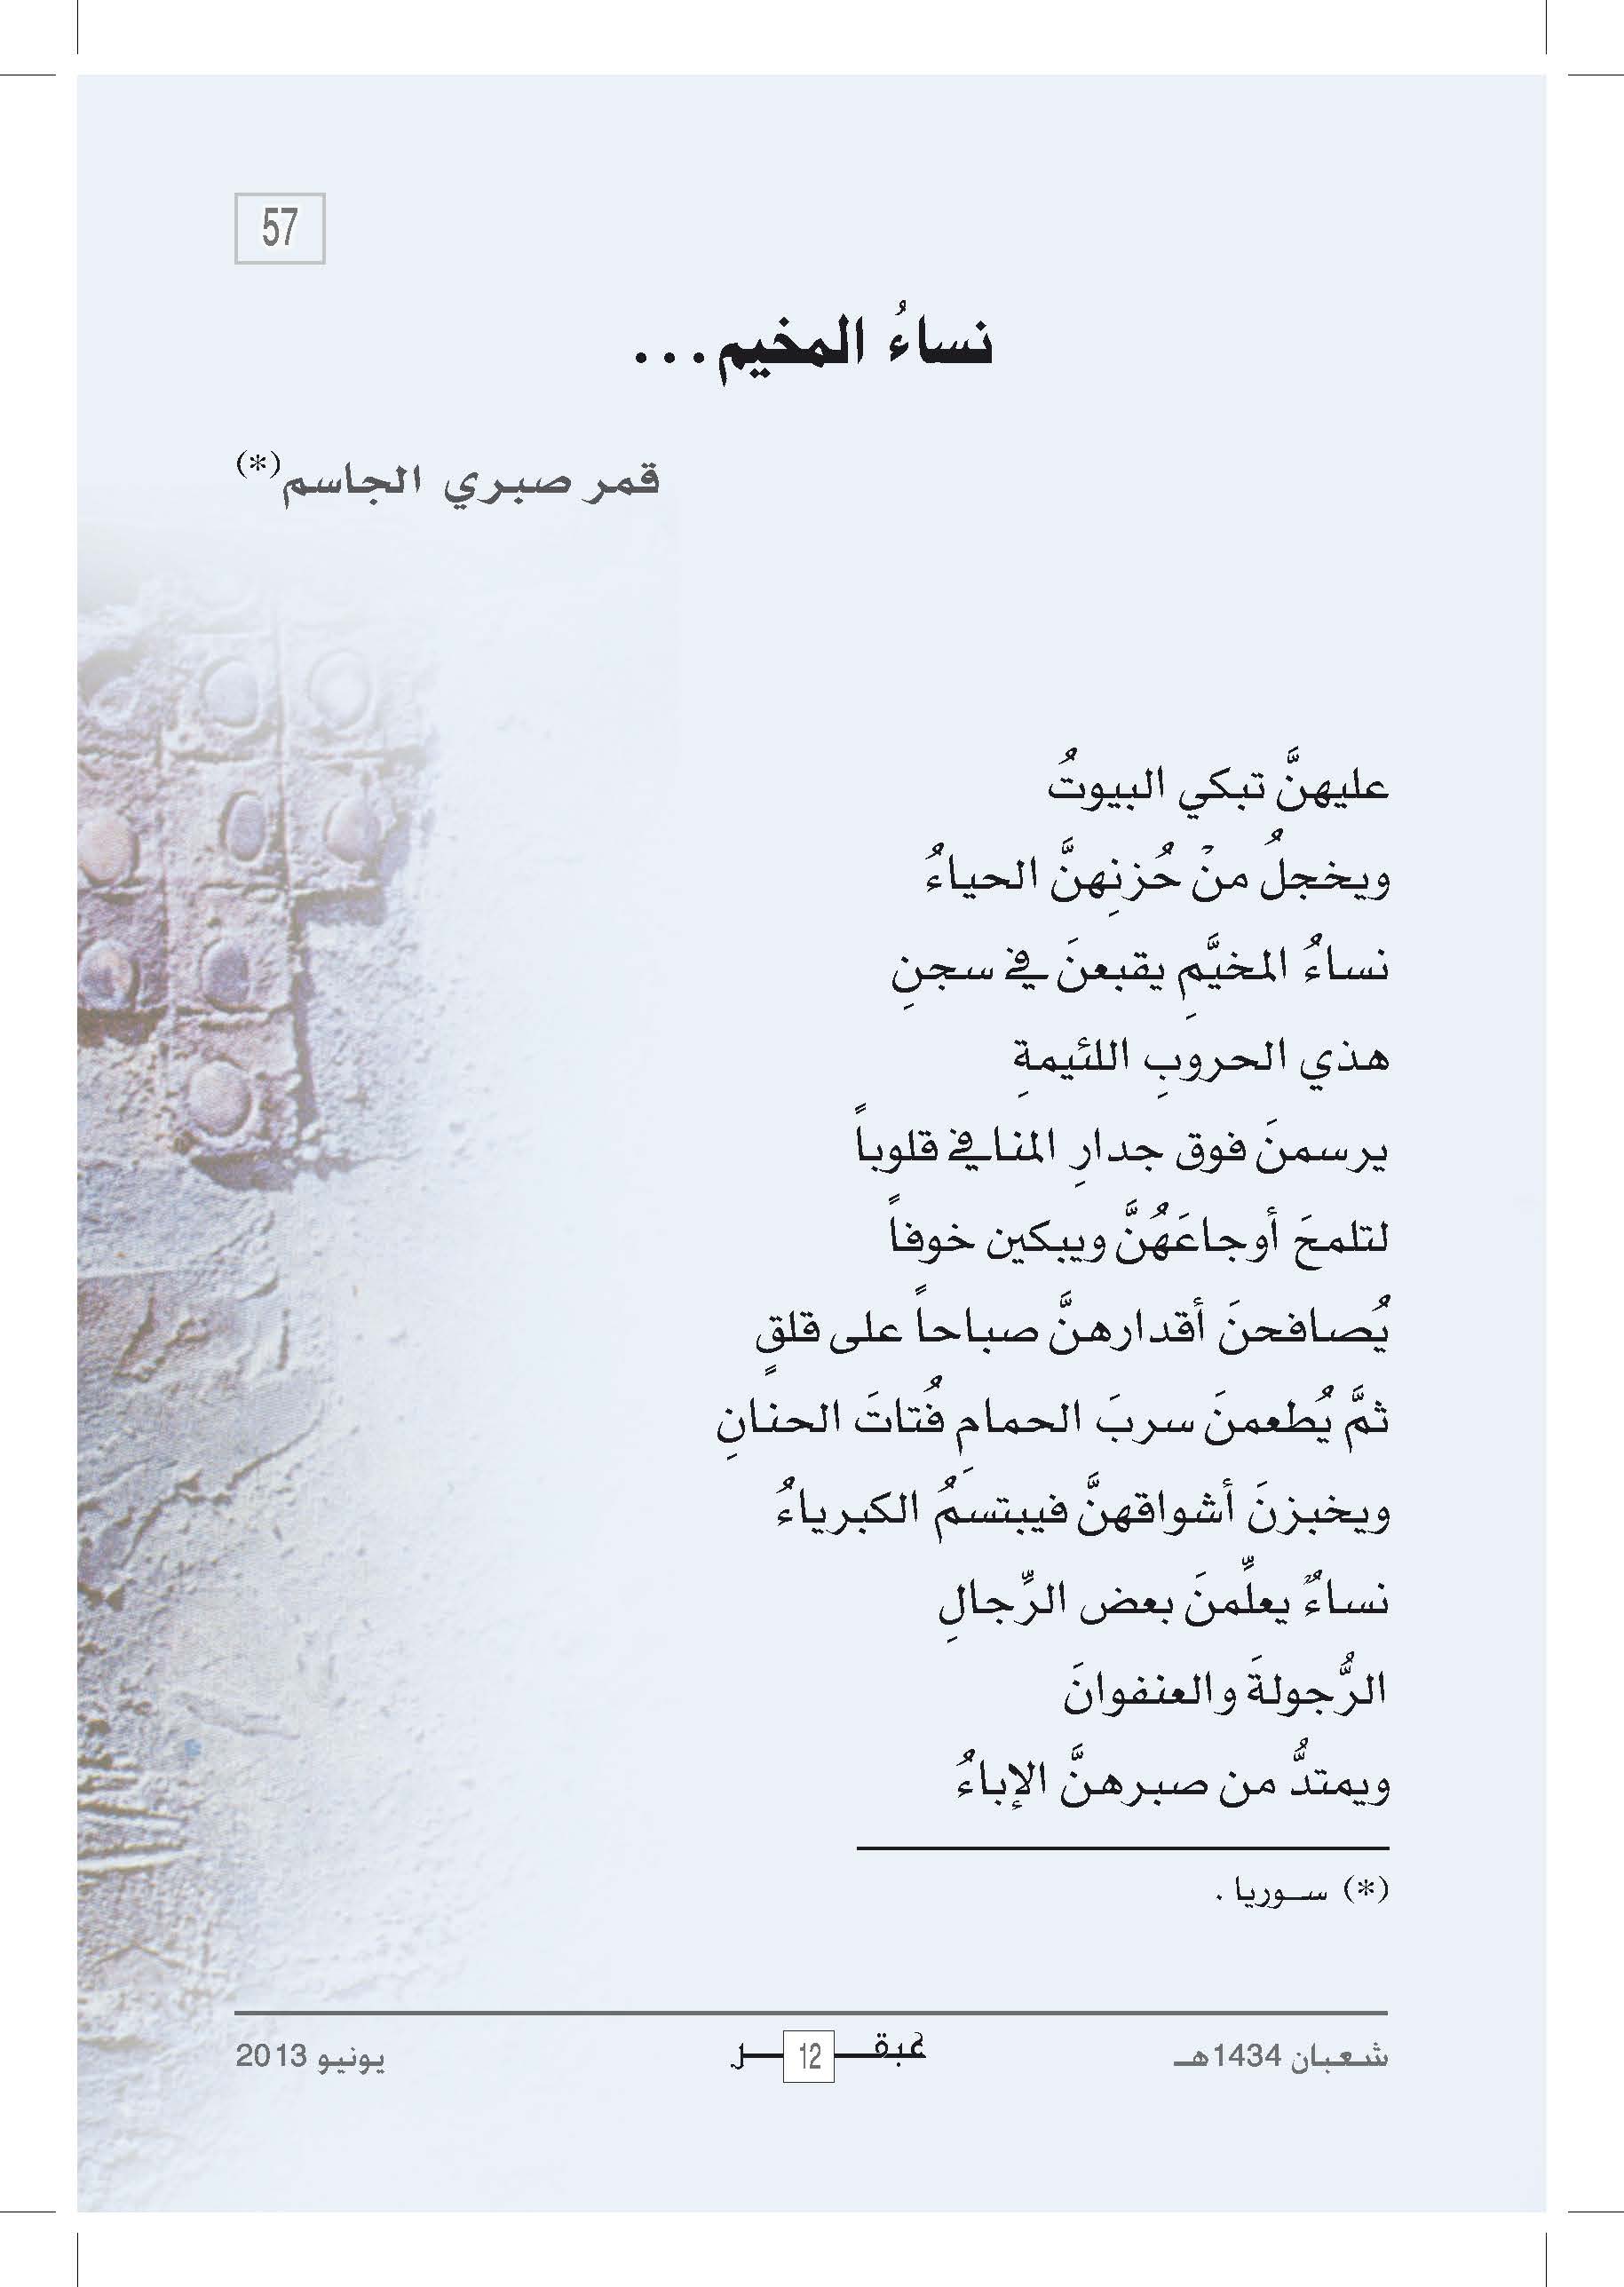 57
نساءُ المخيم...
قمر صبري الجاسم(*)
عليهنَّ تبكي البيوتُ
ويخجلُ منْ حُزنِهنَّ الحياءُ
نساءُ المخيَّمِ يقبعنَ في سجنِ
هذي الحروبِ اللئيمةِ
يرسمنَ فوق جدارِ المنافي قلوباً
لتلمحَ أوجاعَهُنَّ ويبكين خوفاً
يُصافحنَ أقدارهنَّ صباحاً على قلقٍ
ثمَّ يُطعمنَ سربَ الحمامِ فُتاتَ الحنانِ
ويخبزنَ أشواقهنَّ فيبتسمُ الكبرياءُ
نساءٌ يعلِّمنَ بعض الرِّجالِ
الرُّجولةَ والعنفوانَ
ويمتدُّ من صبرهنَّ الإباءُ
(*) سوريا .
شعبان 1434هـ عبقـر 12 يونيو 2013